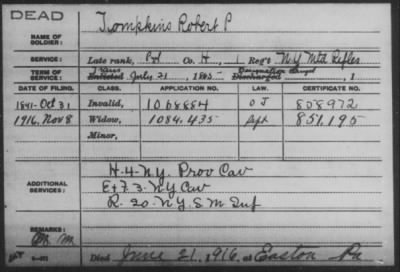 DEAD
NAME OF SOLDIER: Tompkins Robert P
SERVICE: Late rank, Pvt Co. H, 1 Reg't N.Y. Mtd Rifles
TERM OF SERVICE: Trans Enlisted July 21, 1865 Discharged, 1
DATE OF FILING. CLASS. APPLICATION NO. LAW. CERTIFICATE NO.
1891-Oct 31 Invalid, 1068884 O J 808972
1916, Nov 8 Widow, 1084.435 Apr 851,195
Minor,
H-4-N.Y. Prov Cav
ADDITIONAL SERVICES: E & F. 3-N.Y Cav
R-20-N.Y.S.M Inf
REMARKS:
Died June 21, 1916, at Easton Pa